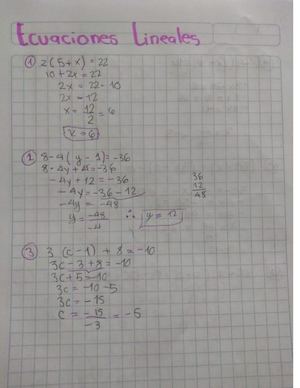 Ecuaciones Lineales
① 2(5+x) = 22
10 + 2x = 22
2x = 22 - 10
2x = 12
x = 12/2 = 6
x = 6
② 8 - 4(y - 1) = -36
8 - 4y + 4 = -36
-4y + 12 = -36
-4y = -36 - 12
-4y = -48
y = -48/-4 ∴ y = 12
36
12
48
③ 3 (c - 1) + 8 = -10
3c - 3 + 8 = -10
3c + 5 = -10
3c = -10 - 5
3c = -15
c = -15/-3 = -5